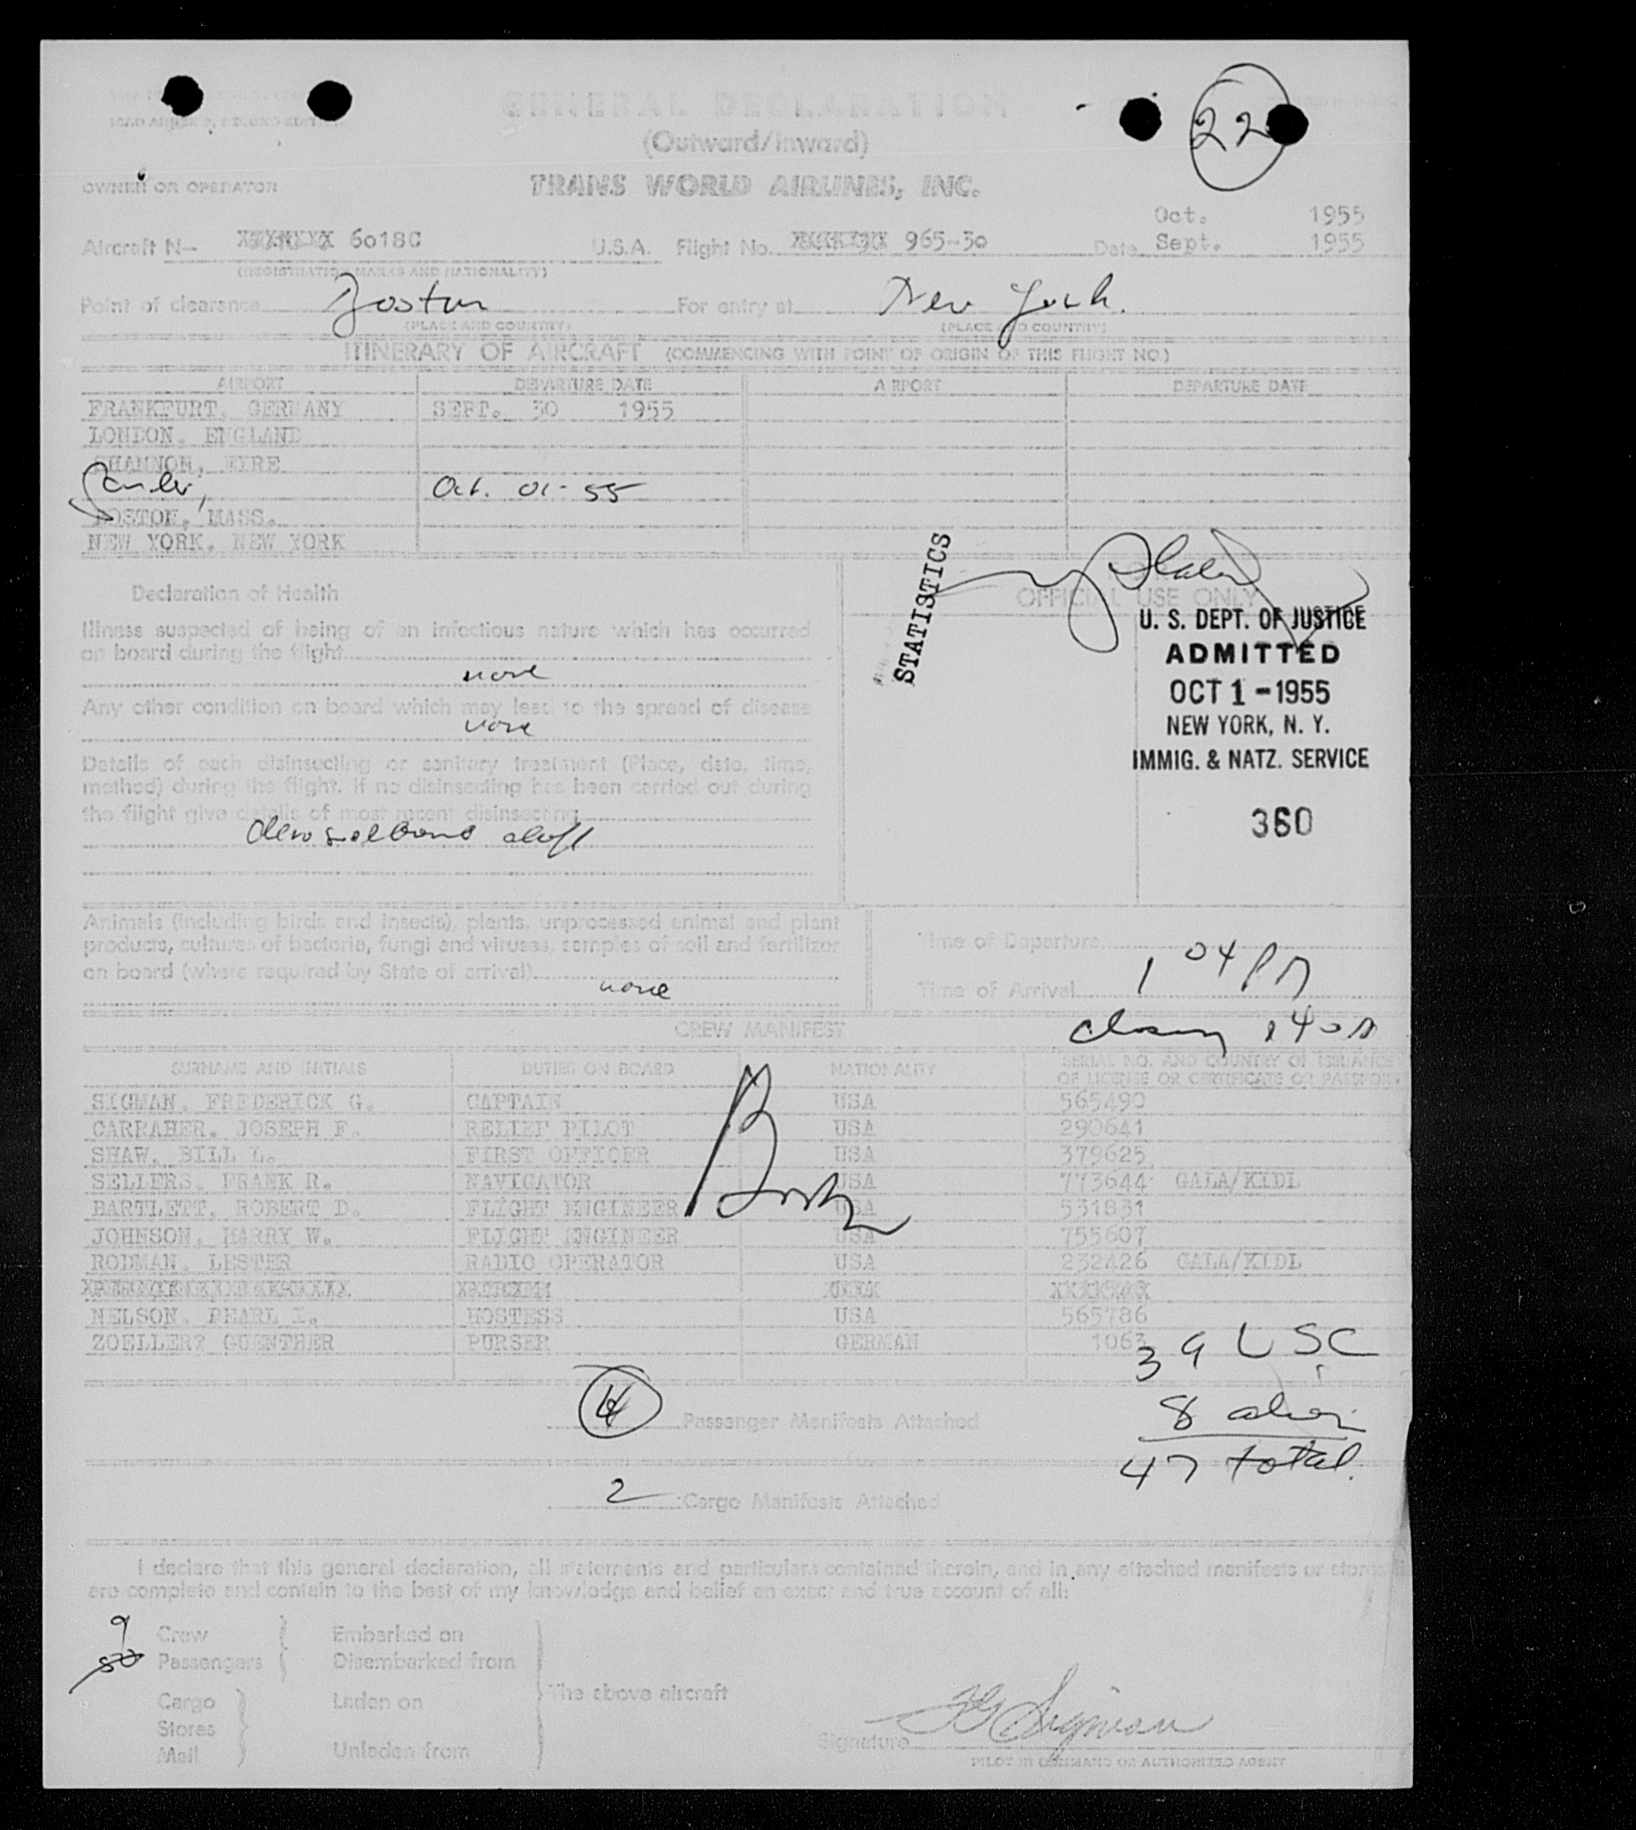 22
GENERAL DECLARATION
(Outward/Inward)
OWNER OR OPERATOR TRANS WORLD AIRLINES, INC.
Oct. 1955
Aircraft N- 6018C U.S.A. Flight No. 965-30 Date Sept. 1955
(REGISTRATION MARKS AND NATIONALITY)
Point of clearance Boston For entry at New York.
(PLACE AND COUNTRY) (PLACE AND COUNTRY)
ITINERARY OF AIRCRAFT (COMMENCING WITH POINT OF ORIGIN OF THIS FLIGHT NO.)
AIRPORT DEPARTURE DATE AIRPORT DEPARTURE DATE
FRANKFURT, GERMANY SEPT. 30 1955
LONDON, ENGLAND
SHANNON, EYRE
Gander, Oct. 01-55
BOSTON, MASS.
NEW YORK, NEW YORK
STATISTICS
Declaration of Health
OFFICIAL USE ONLY
U. S. DEPT. OF JUSTICE
ADMITTED
OCT 1 - 1955
NEW YORK, N. Y.
IMMIG. & NATZ. SERVICE
360
Illness suspected of being of an infectious nature which has occurred
on board during the flight
none
Any other condition on board which may lead to the spread of disease
none
Details of each disinsecting or sanitary treatment (Place, date, time,
method) during the flight. If no disinsecting has been carried out during
the flight give details of most recent disinsecting
Animals (including birds and insects), plants, unprocessed animal and plant
products, cultures of bacteria, fungi and viruses, samples of soil and fertilizer
on board (where required by State of arrival)
none
Time of Departure
Time of Arrival 1 04 PM
CREW MANIFEST
SURNAME AND INITIALS DUTIES ON BOARD NATIONALITY SERIAL NO. AND COUNTRY OF ISSUANCE
OF LICENSE OR CERTIFICATE OR PASSPORT
SIGMAN, FREDERICK G. CAPTAIN USA 565490
CARRAHER, JOSEPH F. RELIEF PILOT USA 290641
SHAW, BILL L. FIRST OFFICER USA 379625
SELLERS, FRANK R. NAVIGATOR USA 773644 GALA/KIDL
BARTLETT, ROBERT D. FLIGHT ENGINEER USA 531831
JOHNSON, HARRY W. FLIGHT ENGINEER USA 755607
RODMAN, LESTER RADIO OPERATOR USA 232426 GALA/KIDL
NELSON, PEARL I. HOSTESS USA 565786
ZOELLER, GUENTHER PURSER GERMAN 1063
39 USC
8 alien
47 total.
4 Passenger Manifests Attached
2 Cargo Manifests Attached
I declare that this general declaration, all statements and particulars contained therein, and in any attached manifests or stores
are complete and contain to the best of my knowledge and belief an exact and true account of all:
9 Crew Embarked on
Passengers Disembarked from
The above aircraft
Cargo Laden on
Stores
Mail Unladen from
Signature FG Sigman
PILOT IN COMMAND OR AUTHORIZED AGENT